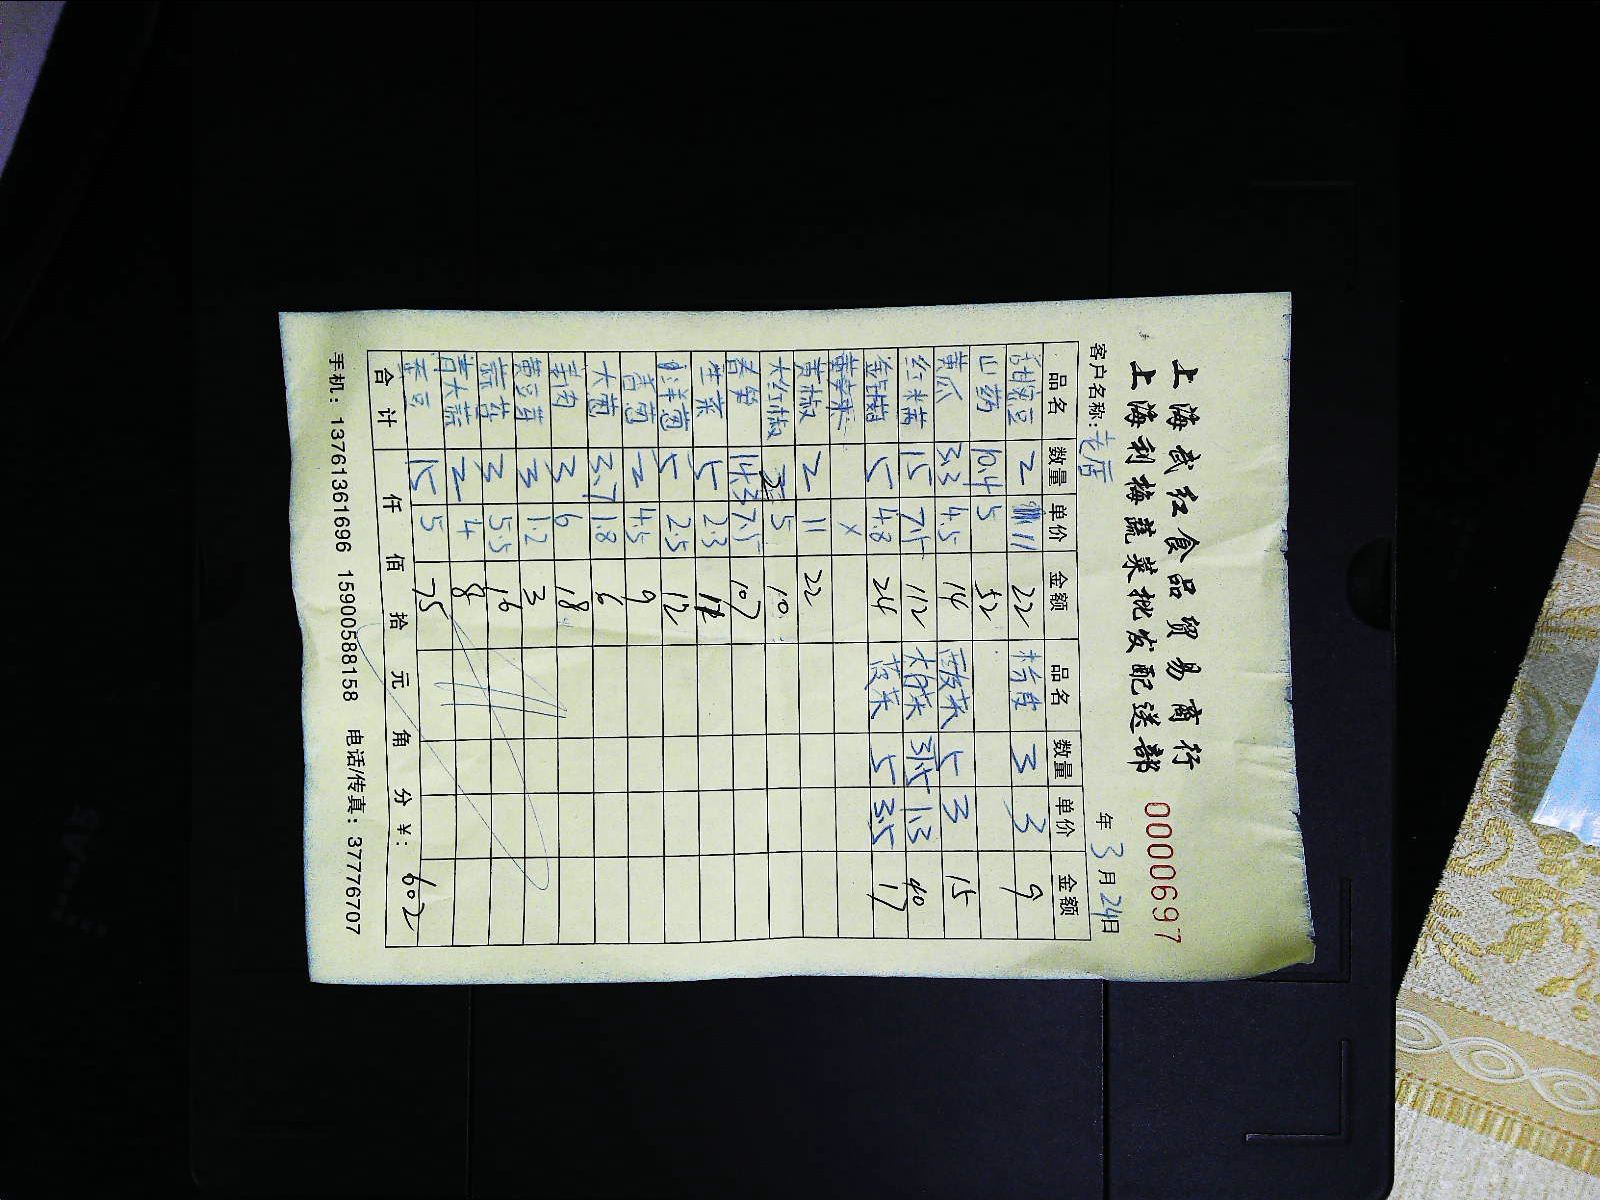 上海武红食品贸易商行
上海利梅蔬菜批发配送部
0000697
客户名称: 年 3 月 24 日
品名 数量 单价 金额 品名 数量 单价 金额
甜豌豆 2 11 22 3 3 9
山药 10.4 5 52
黄瓜 3.3 4.5 14 菠菜 5 3 15
红米苋 15 7.5 112 大白菜 31.5 1.3 40
金针菇 5 4.8 24 菠菜 5 3.5 17
×
黄椒 2 11 22
大红椒 2 5 10
春笋 14.3 7.5 107
生菜 5 2.3 12
洋葱 5 2.5 12
香葱 2 4.5 9
大葱 3.7 1.8 6
3 6 18
黄豆芽 3 1.2 3
蘑菇 3 5.5 16
青大蒜 2 4 8
毛豆 15 5 75
合计 仟 佰 拾 元 角 分 ¥: 602
手机: 13761361696 15900588158 电话/传真: 37776707